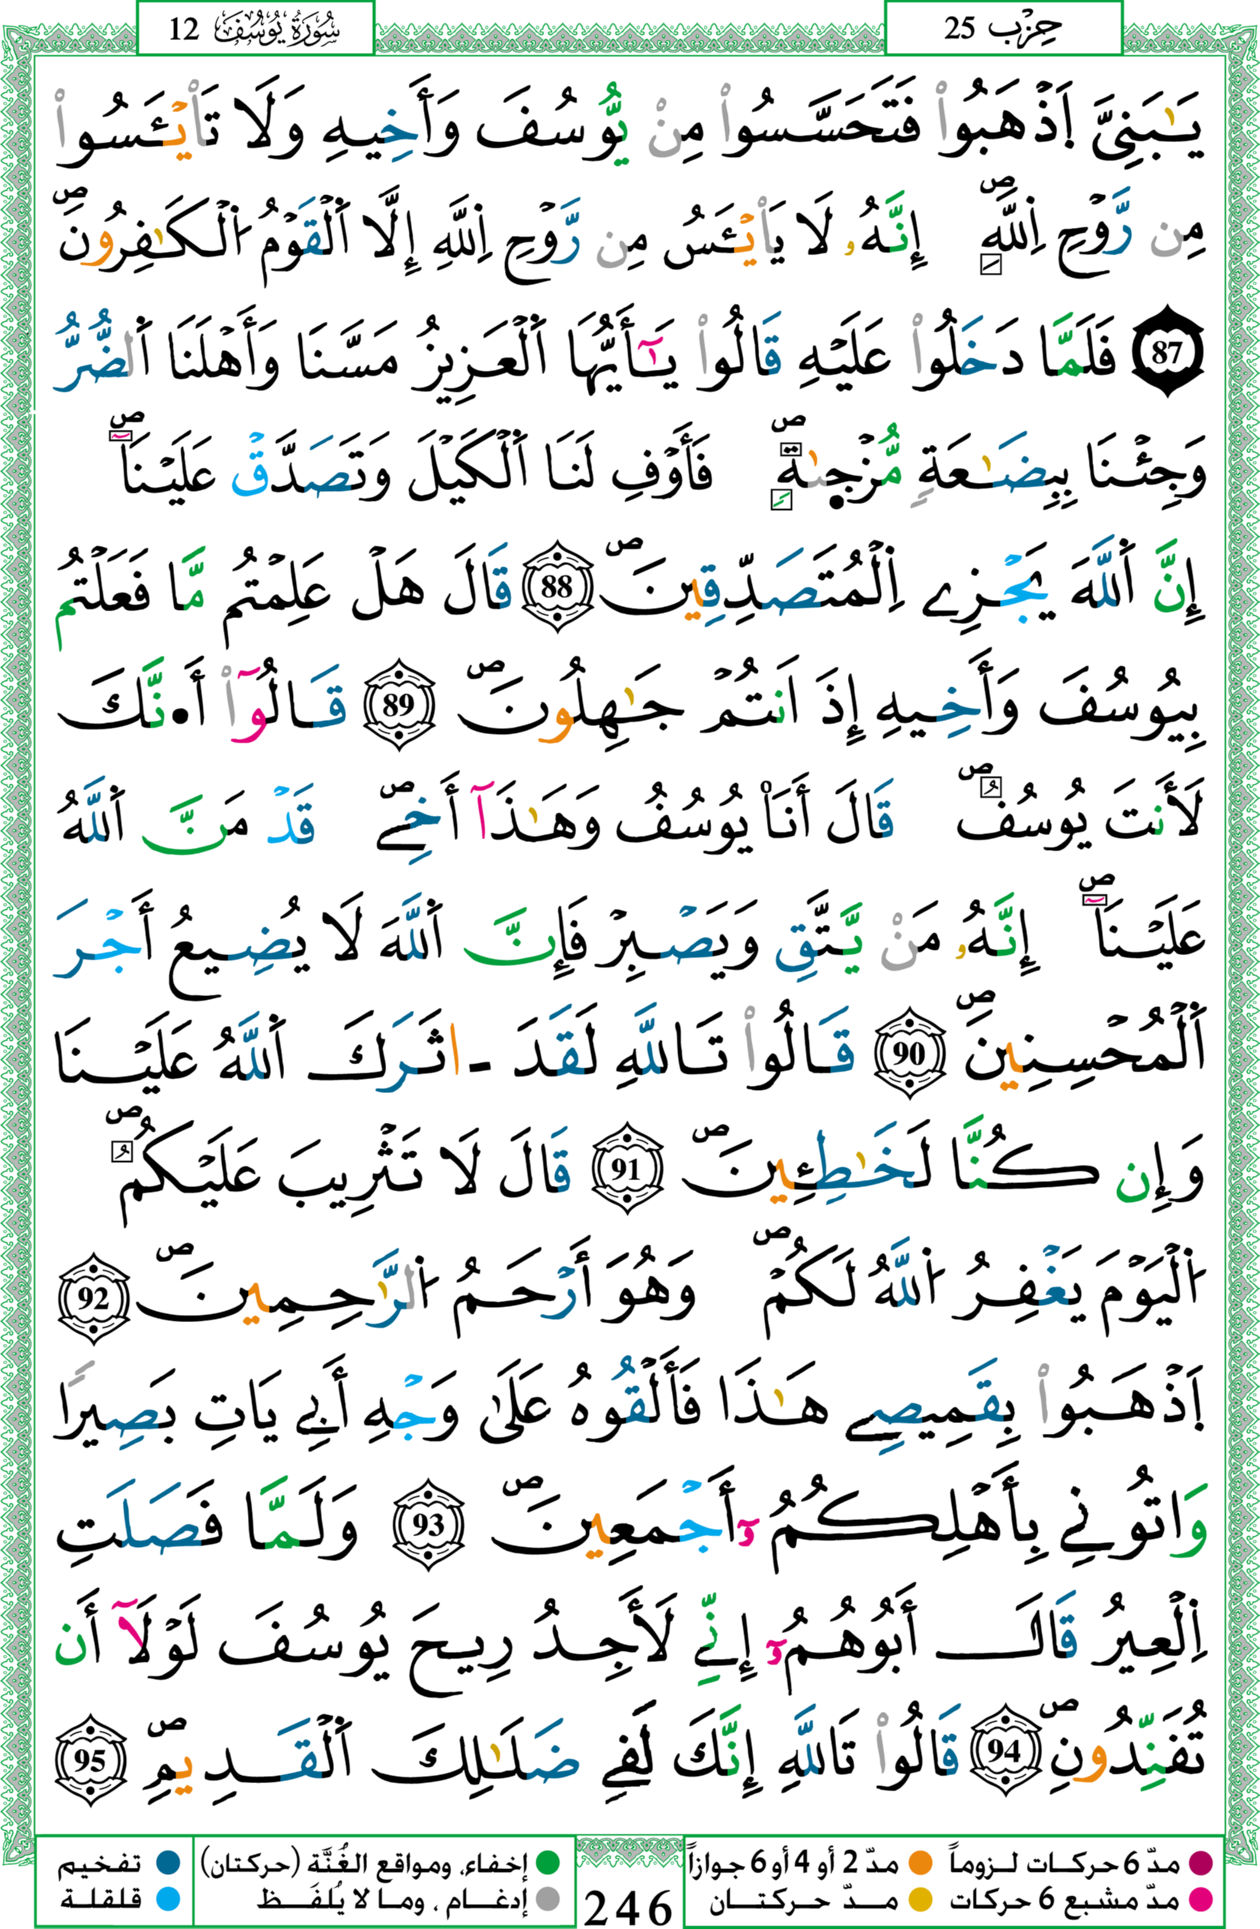 حِزْب 25
سُورَةُ يُوسُفَ 12
يَٰبَنِيَّ اَ۪ذْهَبُواْ فَتَحَسَّسُواْ مِنْ يُّوسُفَ وَأَخِيهِ وَلَا تَاْيْـَٔسُواْ
مِن رَّوْحِ اِ۬للَّهِۖ إِنَّهُۥ لَا يَاْيْـَٔسُ مِن رَّوْحِ اِ۬للَّهِ إِلَّا اَ۬لْقَوْمُ اُ۬لْكَٰفِرُونَۖ
87 فَلَمَّا دَخَلُواْ عَلَيْهِ قَالُواْ يَٰٓأَيُّهَا اَ۬لْعَزِيزُ مَسَّنَا وَأَهْلَنَا اَ۬لضُّرُّ
وَجِئْنَا بِبِضَٰعَةٖ مُّزْج۪يٰةٖۖ فَأَوْفِ لَنَا اَ۬لْكَيْلَ وَتَصَدَّقْ عَلَيْنَاۖ
إِنَّ اَ۬للَّهَ يَجْزِے اِ۬لْمُتَصَدِّقِينَۖ 88 قَالَ هَلْ عَلِمْتُم مَّا فَعَلْتُم
بِيُوسُفَ وَأَخِيهِ إِذَ اَنتُمْ جَٰهِلُونَۖ 89 قَالُوٓاْ أَ۟نَّكَ
لَأَنتَ يُوسُفُۖ قَالَ أَنَا۠ يُوسُفُ وَهَٰذَآ أَخِےۖ قَدْ مَنَّ اَ۬للَّهُ
عَلَيْنَاۖ إِنَّهُۥ مَنْ يَّتَّقِ وَيَصْبِرْ فَإِنَّ اَ۬للَّهَ لَا يُضِيعُ أَجْرَ
اَ۬لْمُحْسِنِينَۖ 90 قَالُواْ تَاللَّهِ لَقَدَ ـاثَرَكَ اَ۬للَّهُ عَلَيْنَا
وَإِن كُنَّا لَخَٰطِـِٕينَۖ 91 قَالَ لَا تَثْرِيبَ عَلَيْكُمُۖ
اُ۬لْيَوْمَ يَغْفِرُ اُ۬للَّهُ لَكُمْۖ وَهُوَ أَرْحَمُ اُ۬لرَّٰحِمِينَۖ 92
اَ۪ذْهَبُواْ بِقَمِيصِے هَٰذَا فَأَلْقُوهُ عَلَىٰ وَجْهِ أَبِے يَاتِ بَصِيراٗ
وَاتُونِے بِأَهْلِكُمُۥٓ أَجْمَعِينَۖ 93 وَلَمَّا فَصَلَتِ
اِ۬لْعِيرُ قَالَ أَبُوهُمُۥٓ إِنِّے لَأَجِدُ رِيحَ يُوسُفَ لَوْلَآ أَن
تُفَنِّدُونِۖ 94 قَالُواْ تَاللَّهِ إِنَّكَ لَفِے ضَلَٰلِكَ اَ۬لْقَدِيمِۖ 95
مدّ 6 حركات لـزوماً
مدّ 2 أو 4 أو 6 جوازاً
مدّ مشبع 6 حركات
مــدّ حـركتــان
246
إخفاء، ومواقع الغُنَّة (حركتان)
إدغـام ، ومـا لا يُلفَـظ
تفخيم
قلقلة